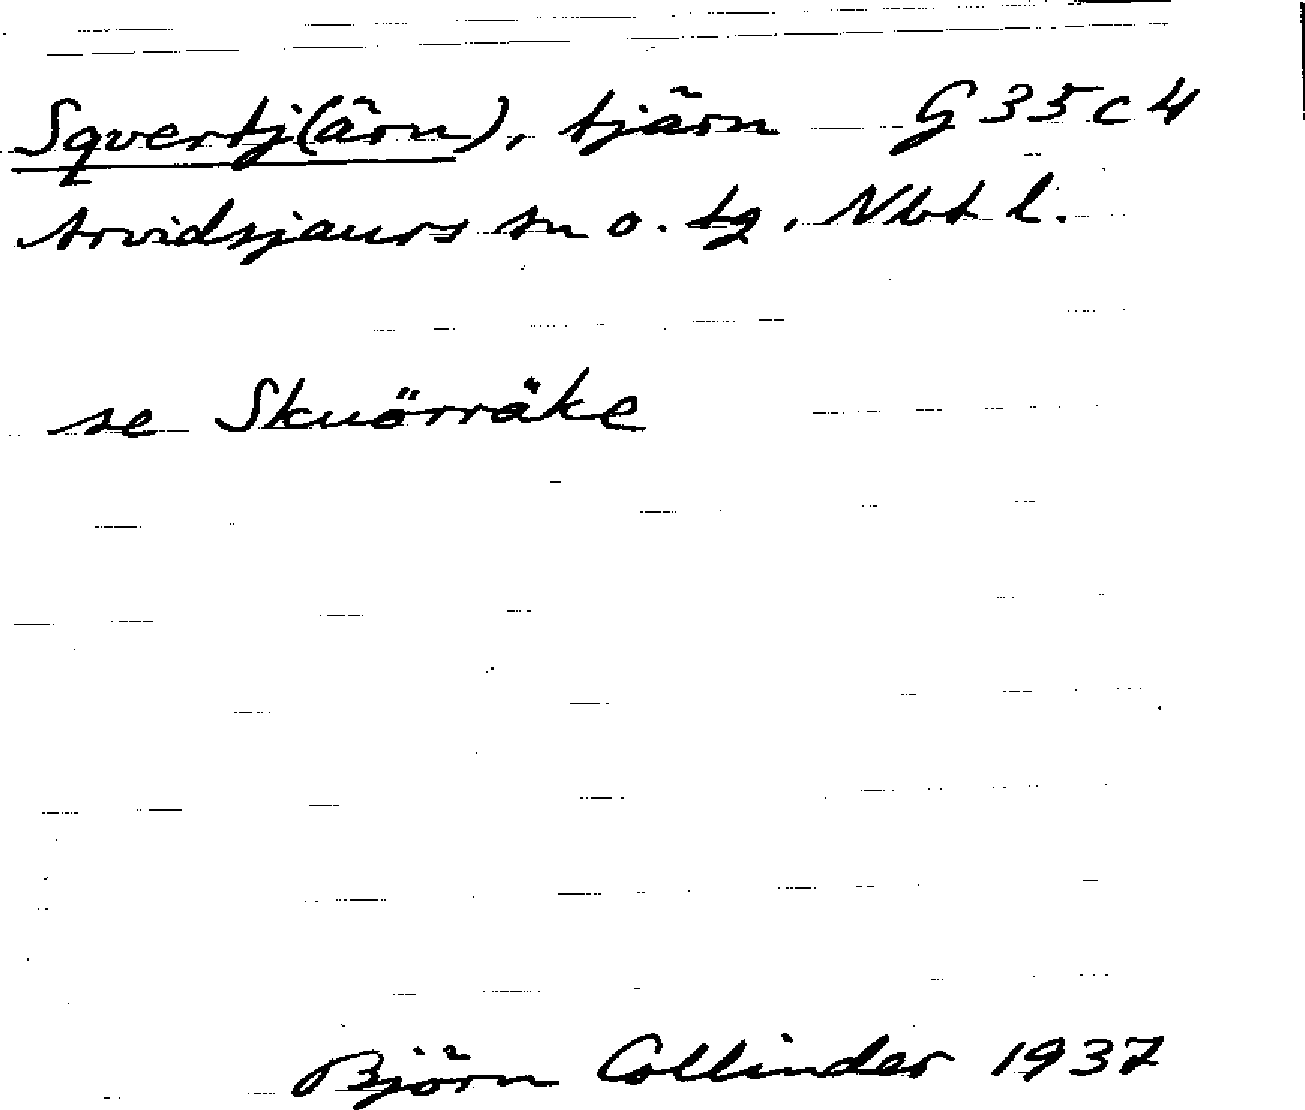 Sqvertj(ärn), tjärn G 35 c 4
Arvidsjaurs sn o. tg, Nbt l.
se Skuörräke
Björn Collinder 1937